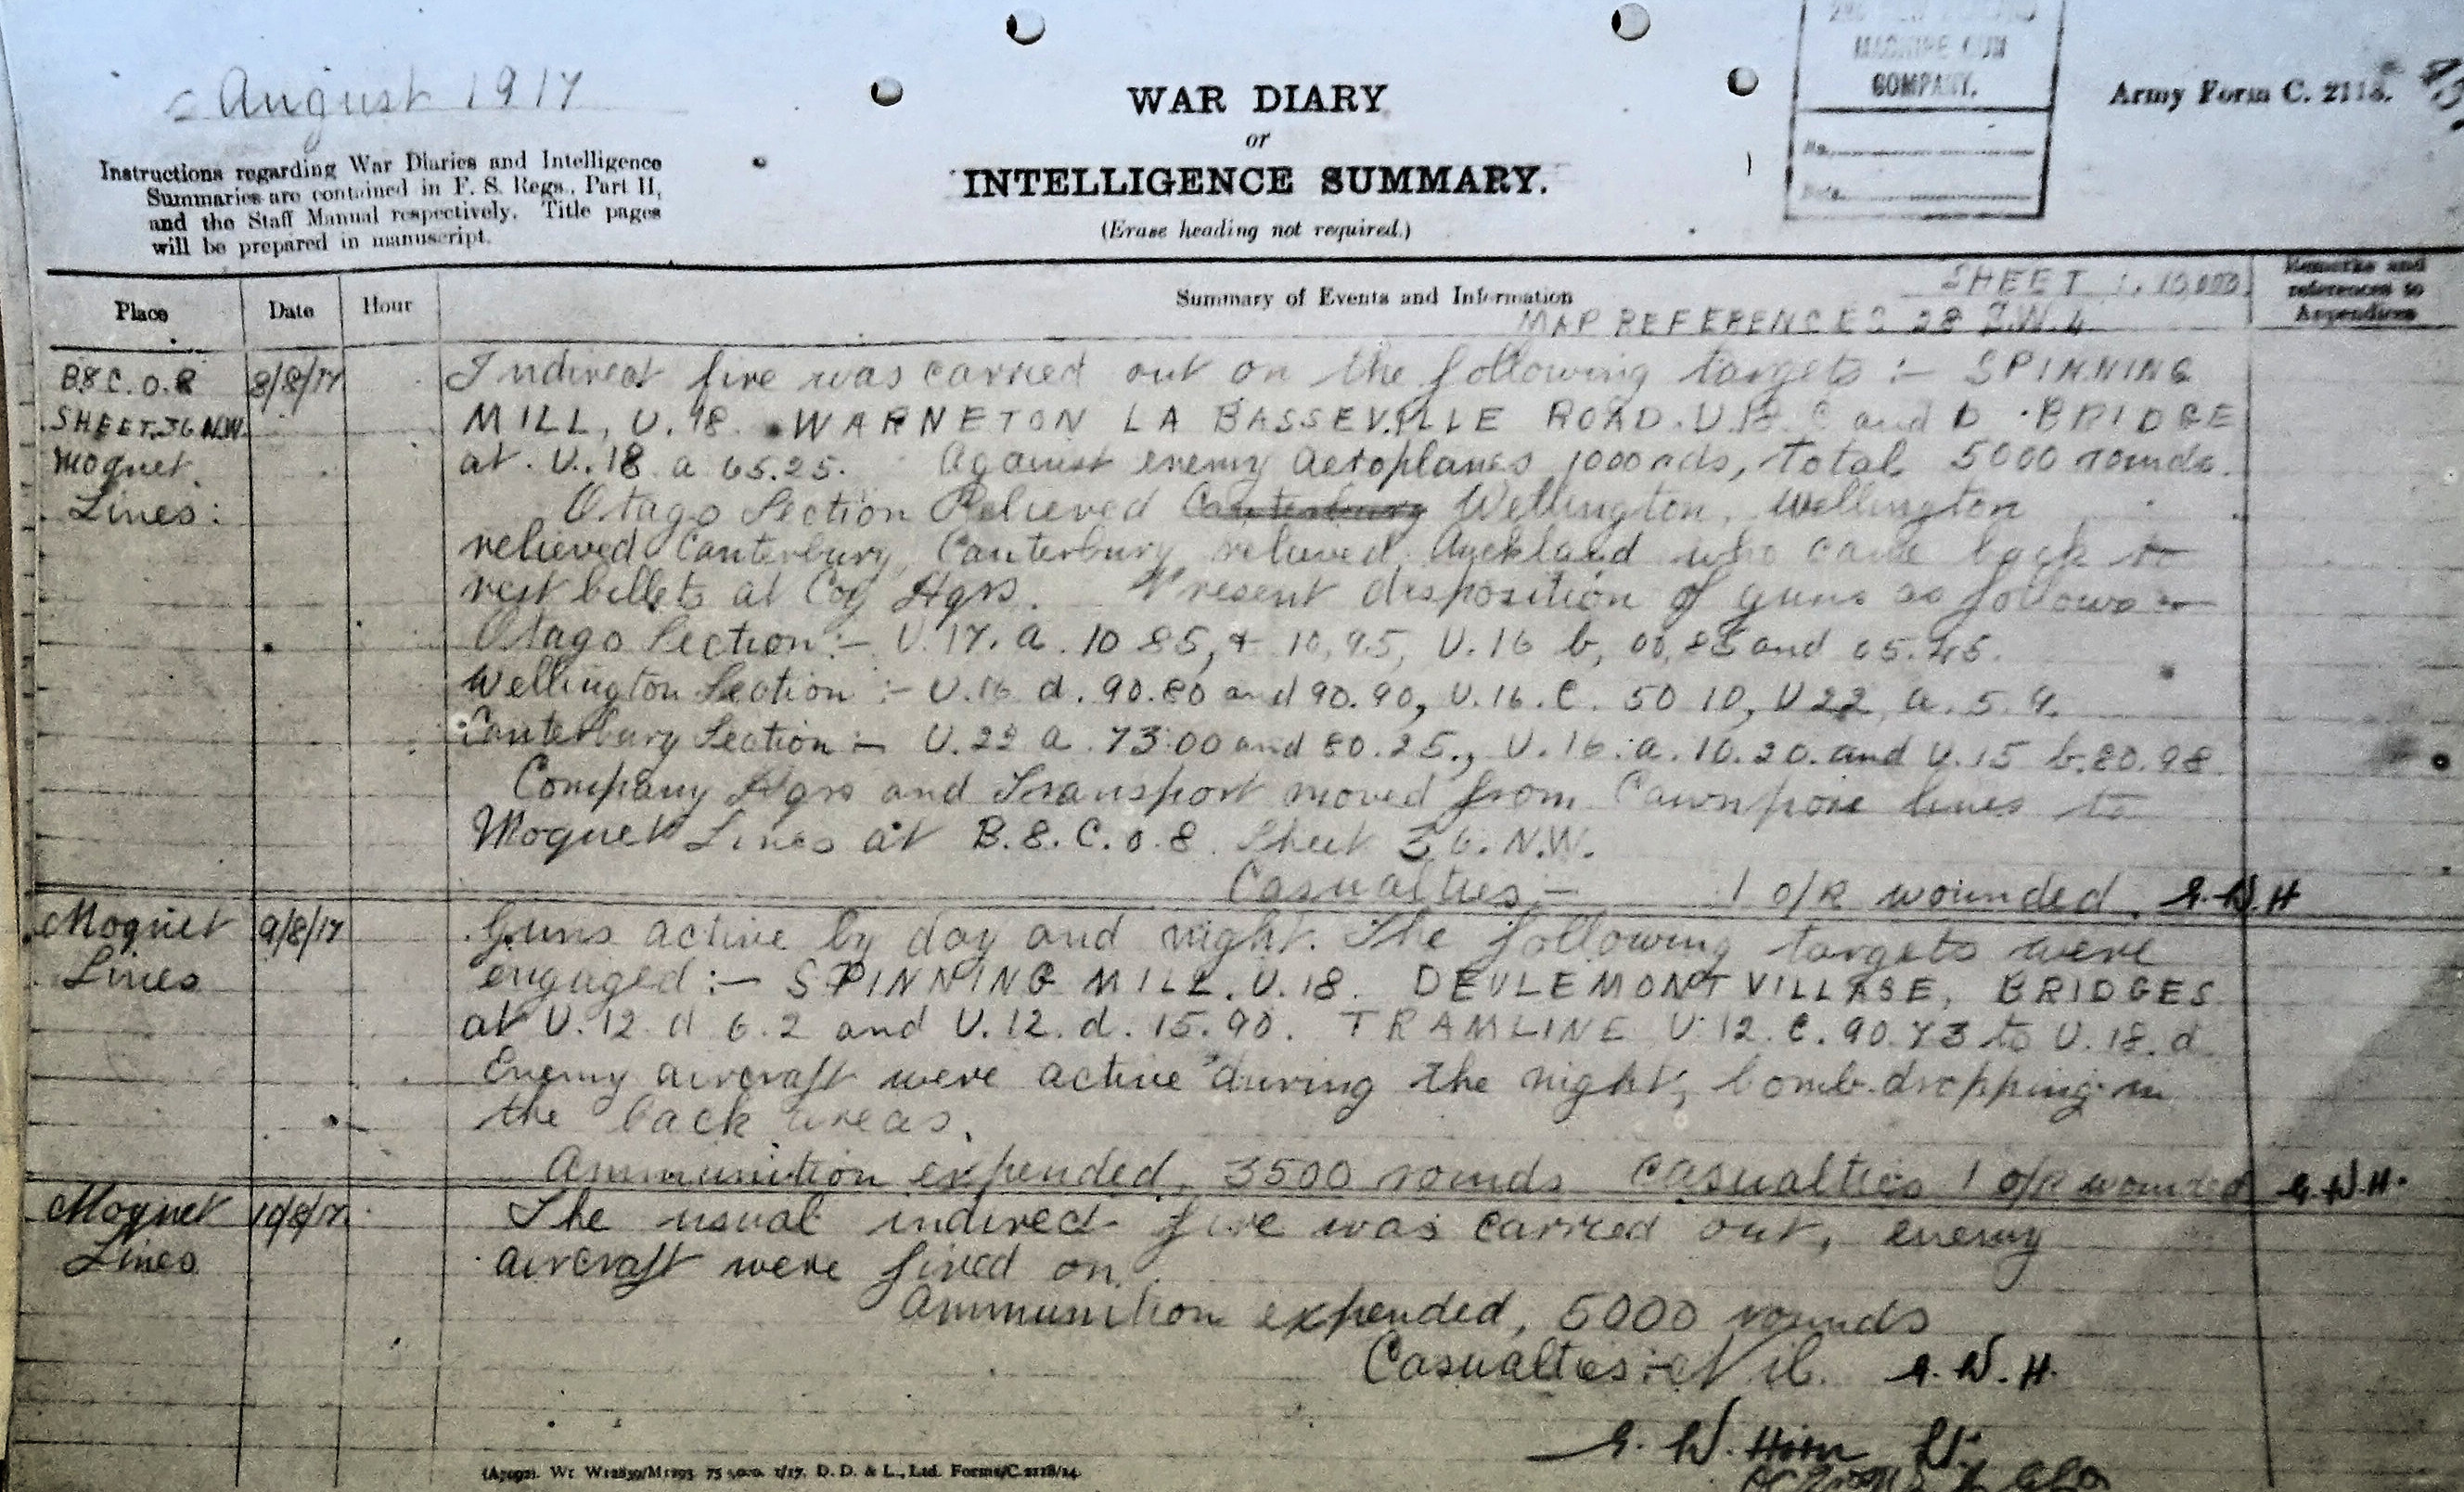 August 1917
MACHINE GUN
COMPANY.
No.
Date
Army Form C. 2118.
WAR DIARY
or
INTELLIGENCE SUMMARY.
(Erase heading not required.)
Instructions regarding War Diaries and Intelligence
Summaries are contained in F. S. Regs., Part II,
and the Staff Manual respectively. Title pages
will be prepared in manuscript.
Place Date Hour
Summary of Events and Information
SHEET 1.10,000
MAP REFERENCES 28 S.W.4
Remarks and
references to
Appendices
B8 C.O.8 8/8/17 Indirect fire was carried out on the following targets :- SPINNING
SHEET.36 N.W. MILL, U.18. WARNETON LA BASSEVILLE ROAD. U.18. C and D. BRIDGE
Moquet at. U.18 a 65.25. Against enemy Aeroplanes 1000 rds, total 5000 rounds.
Lines: Otago Section Relieved Canterbury Wellington, Wellington
relieved Canterbury, Canterbury relieved Auckland who came back to
rest billets at Coy Hqrs. Present disposition of guns as follows :-
Otago Section :- U.17. a. 10 85, + 10,95, U.16 b, 00,85 and 05.45.
Wellington Section :- U.16 d. 90.80 and 90.90, U.16. C. 50 10, U 22, a. 5.9.
Canterbury Section :- U.22 a. 73.00 and 80.25., U.16. a. 10.20. and U.15 b.80.98
Company Hqrs and Transport moved from Cawnpore lines to
Moquet Lines at B.8.C.0.8. Sheet 36. N.W.
Casualties :- 1 o/R wounded. G.W.H
Moquet 9/8/17 Guns active by day and night. The following targets were
Lines engaged :- SPINNING MILL. U.18. DEULEMONT VILLAGE, BRIDGES
at U.12 d 6.2 and U.12. d. 15.90. TRAMLINE U.12. C. 90.73 to U.18. d.
Enemy aircraft were active during the night, bomb dropping in
the back areas.
Ammunition expended, 3500 rounds Casualties 1 o/R wounded G.W.H.
Moquet 10/8/17. The usual indirect fire was carried out, enemy
Lines aircraft were fired on.
Ammunition expended, 5000 rounds
Casualties :- Nil. G.W.H.
G. W. Horn Lt.
Forms/C.2118/14.
D. D. & L., Ltd.